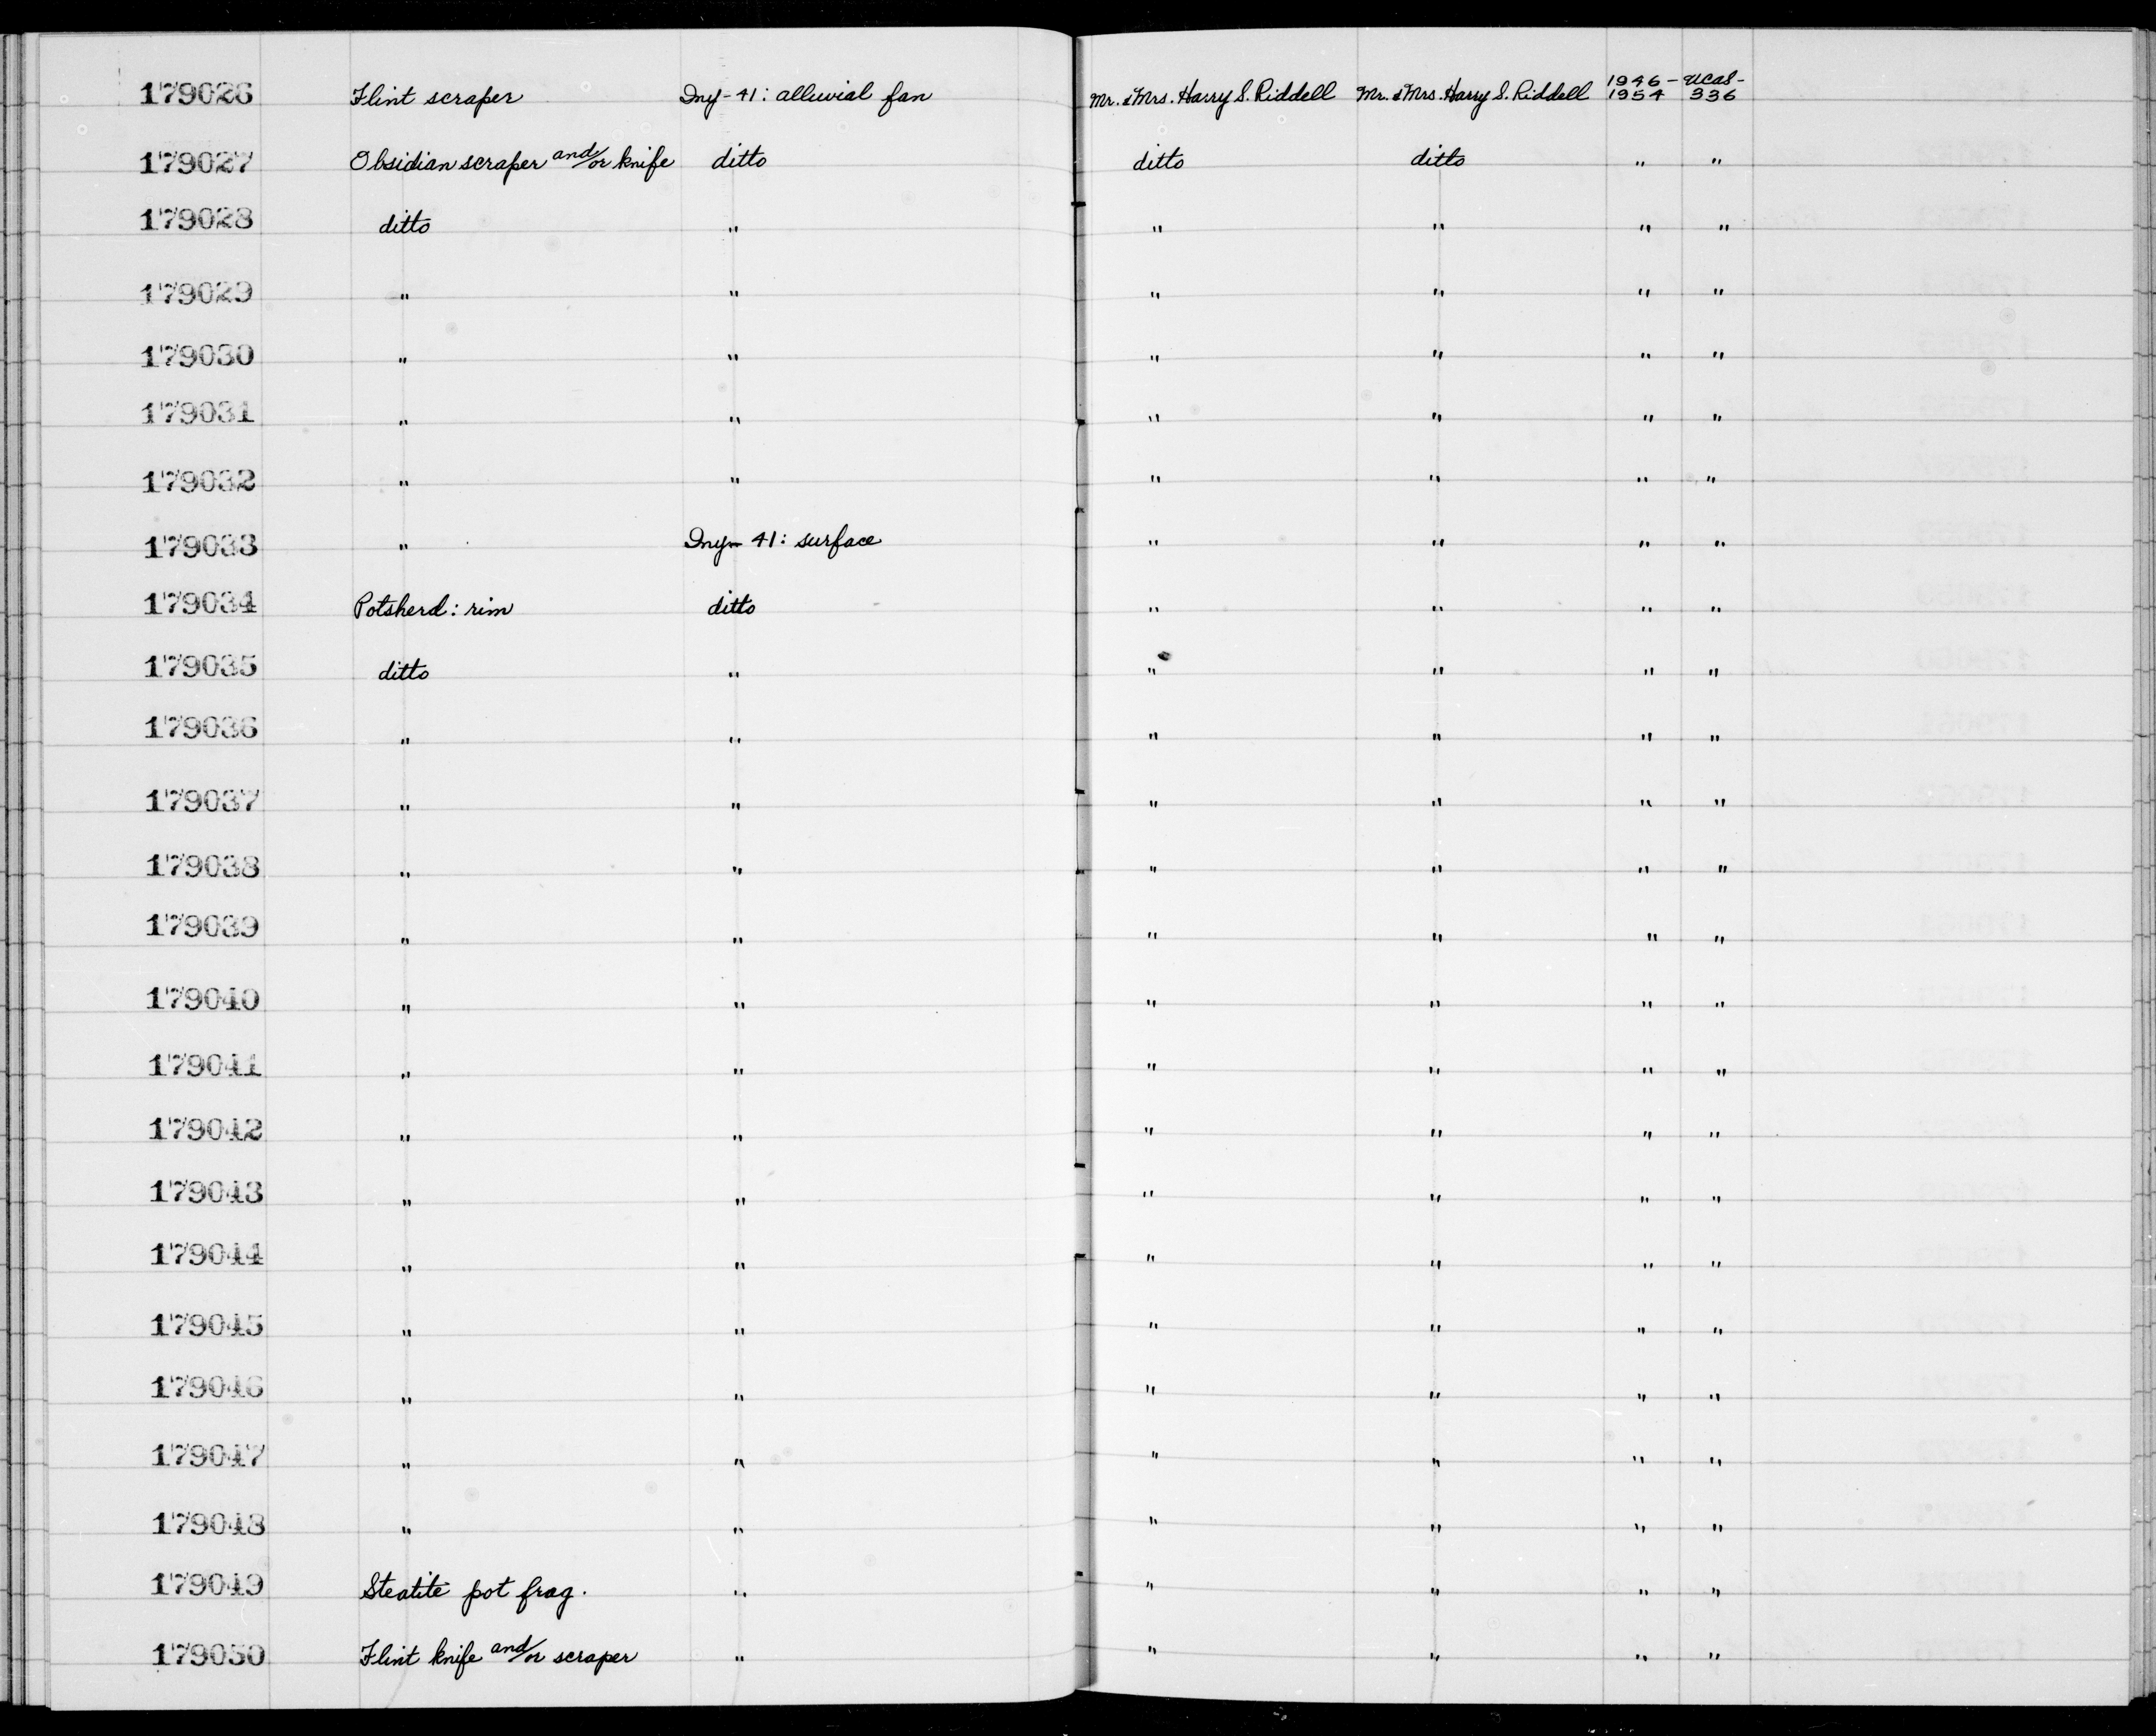 179026 Flint scraper Iny-41: alluvial fan Mr. & Mrs. Harry S. Riddell Mr. & Mrs. Harry S. Riddell 1946-1954 UCAS-336
179027 Obsidian scraper and/or knife ditto ditto ditto " "
179028 ditto " " " " "
179029 " " " " " "
179030 " " " " " "
179031 " " " " " "
179032 " " " " " "
179033 " Iny-41: surface " " " "
179034 Potsherd: rim ditto " " " "
179035 ditto " " " " "
179036 " " " " " "
179037 " " " " " "
179038 " " " " " "
179039 " " " " " "
179040 " " " " " "
179041 " " " " " "
179042 " " " " " "
179043 " " " " " "
179044 " " " " " "
179045 " " " " " "
179046 " " " " " "
179047 " " " " " "
179048 " " " " " "
179049 Steatite pot frag. " " " " "
179050 Flint knife and/or scraper " " " " "